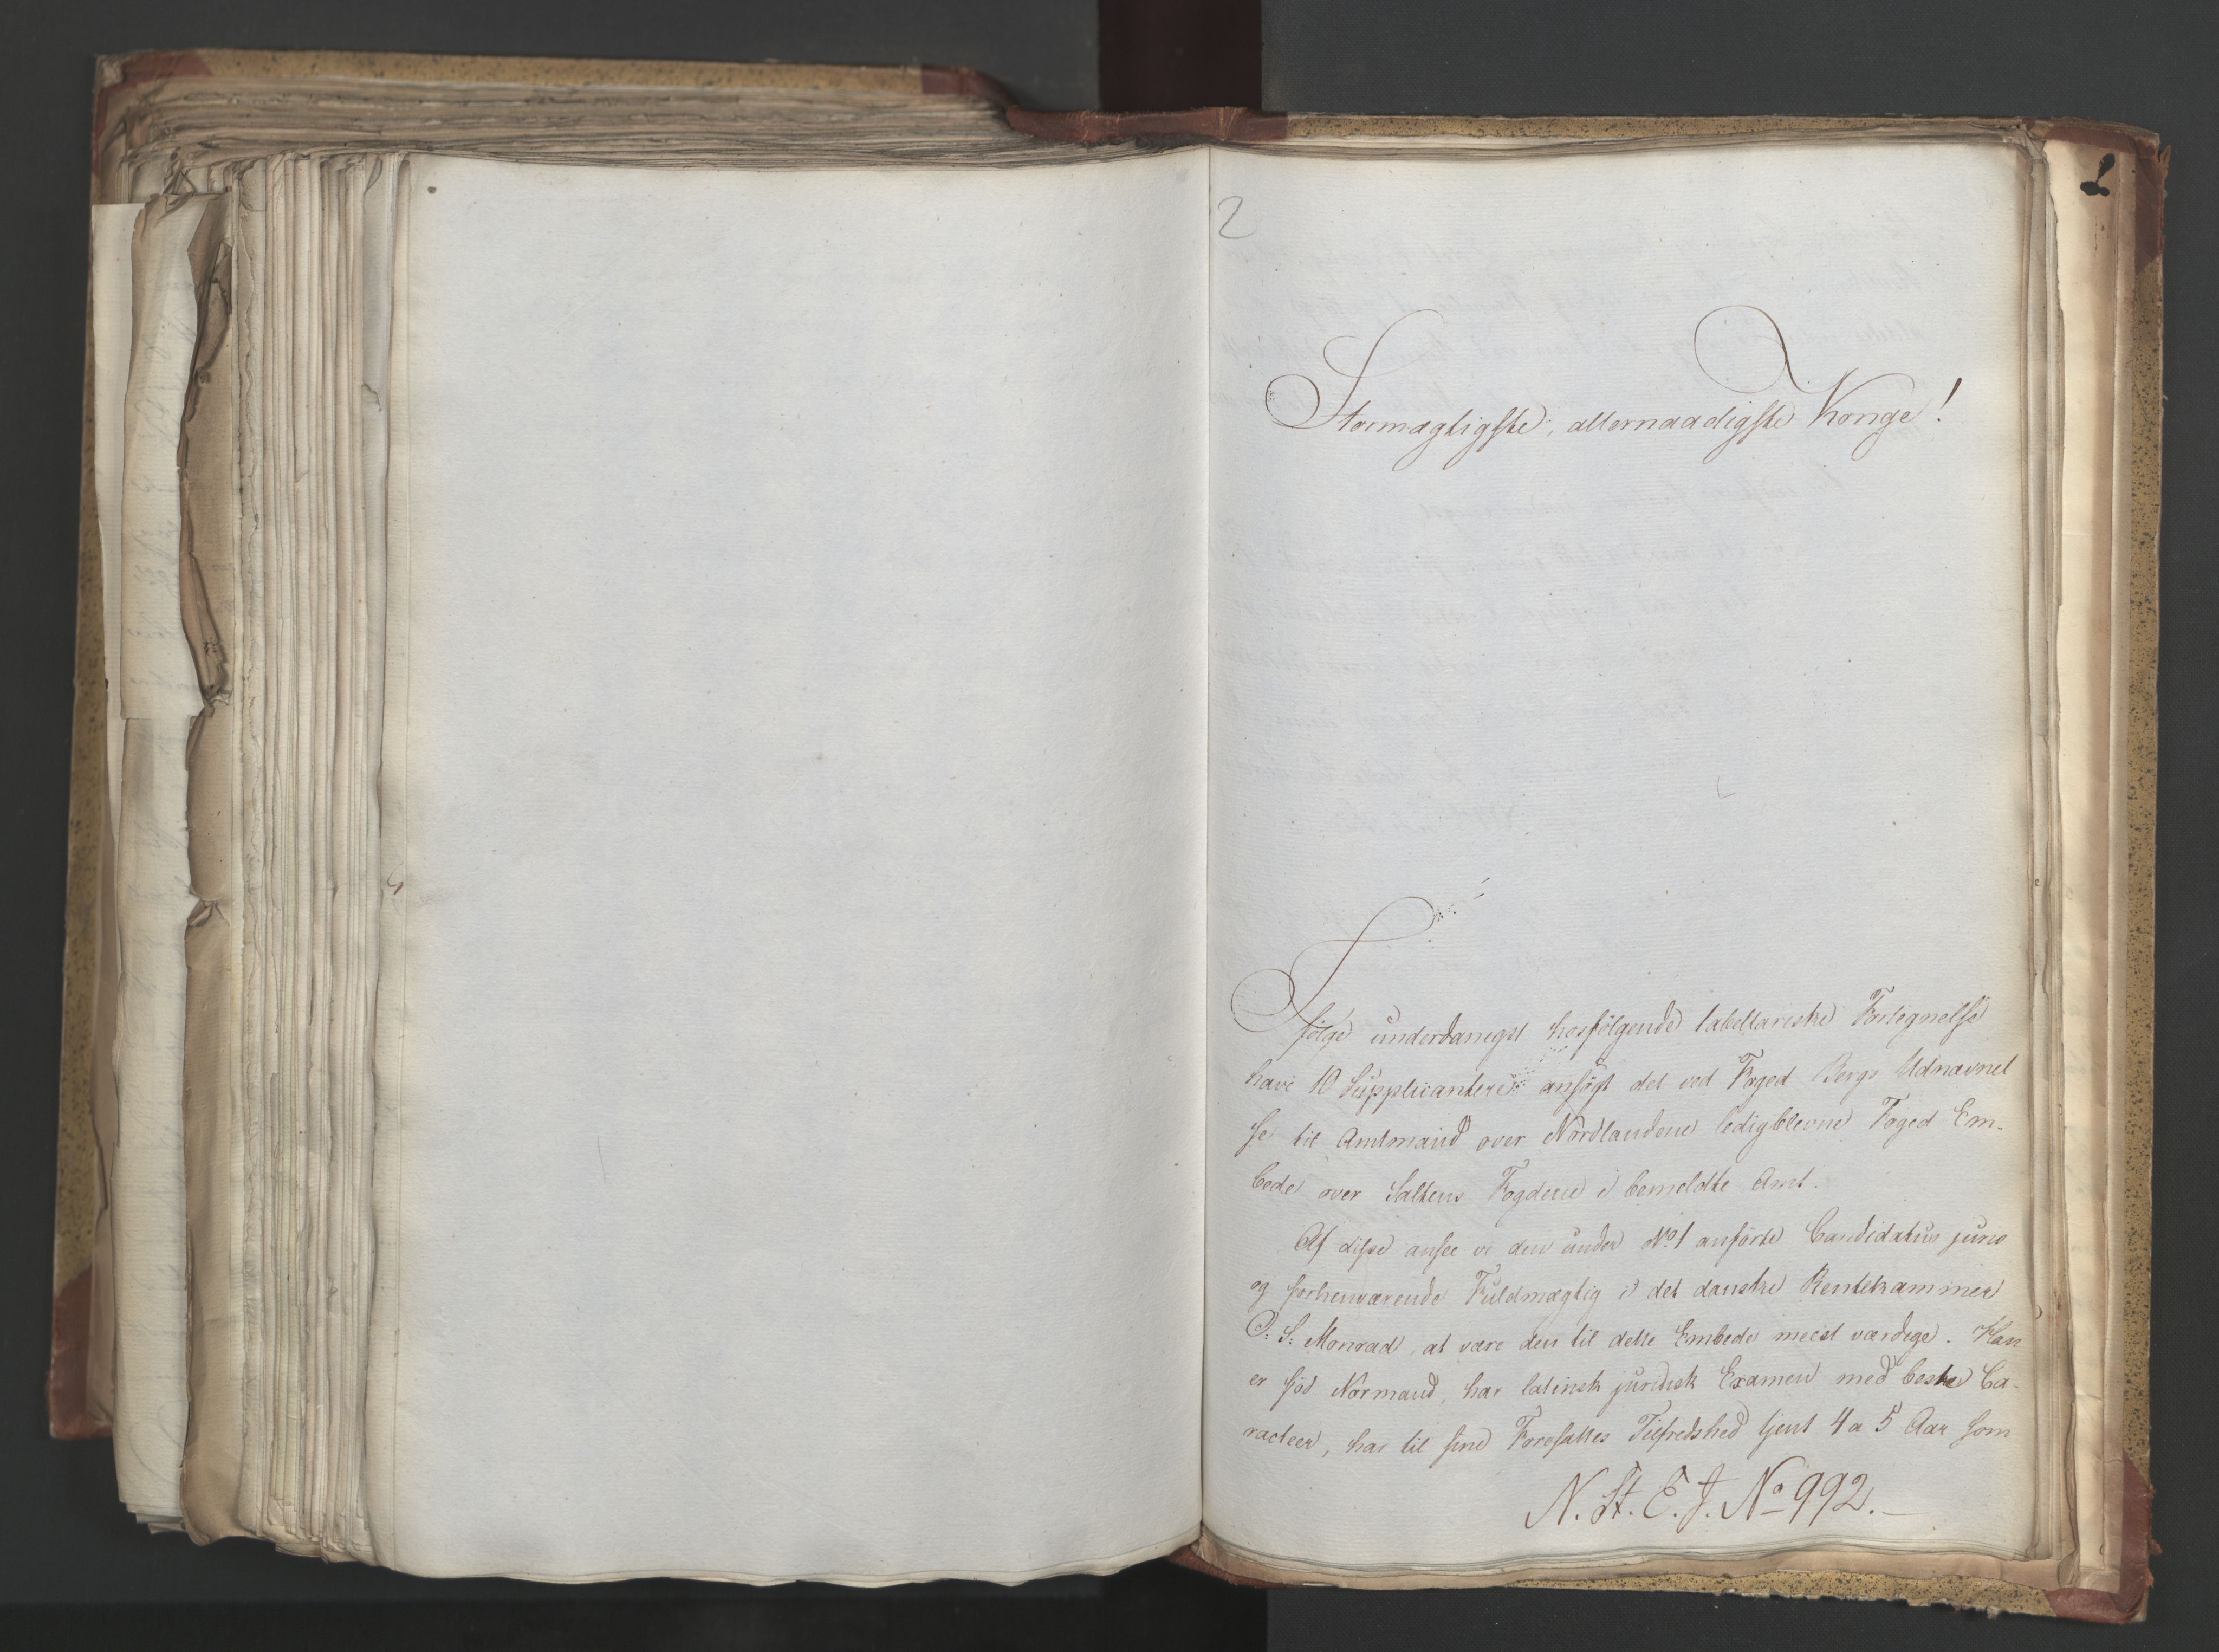 2
Stormægtigste, allernaadigste Konge!
Ifølge underdanigst hosfølgende tabellariske Fortegnelse
have 10 Supplicantere ansøgt det ved Foged Bergs Udnævnel
se til Amtmand over Nordlandene ledigblevne Foged Em-
bede over Saltens Fogderie i bemeldte Amt.
Af disse ansee vi den under No 1 anførte Candidatus juris
og forhenværende Fuldmægtig i det danske Rentekammer
P: S: Monrad, at være den til dette Embede meest værdige. Han
er fød Normand, har latinsk juridisk Examen med beste Ca-
racteer, har til sine Foresattes Tilfredshed tjent 4 a 5 Aar som
N. St. E. J. No 992.